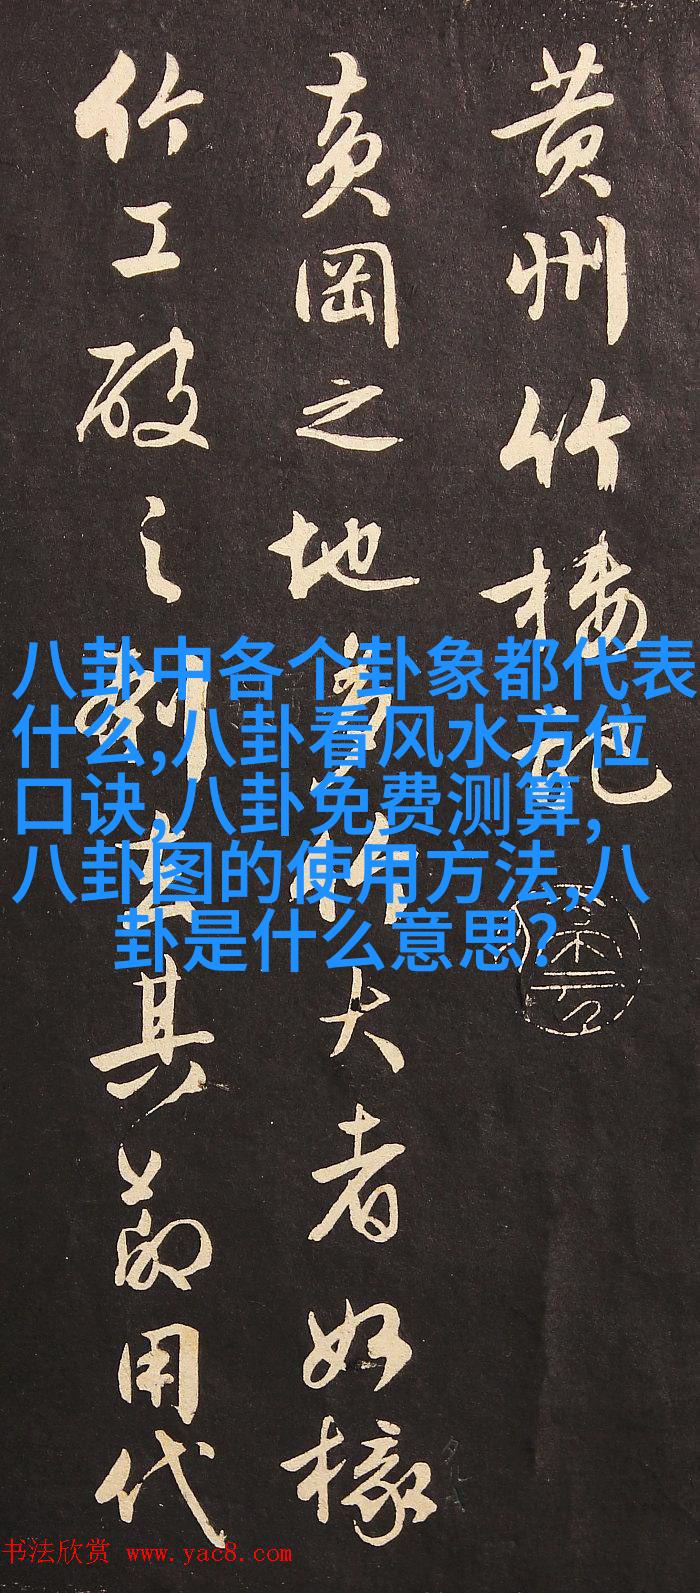 黄州竹楼记
黄冈之地多竹大者如椽
竹工破之刳去其节用代
八卦中各个卦象都代表
什么,八卦看风水方位
口诀,八卦免费测算,
八卦图的使用方法,八
卦是什么意思?
书法欣赏 www.yac8.com